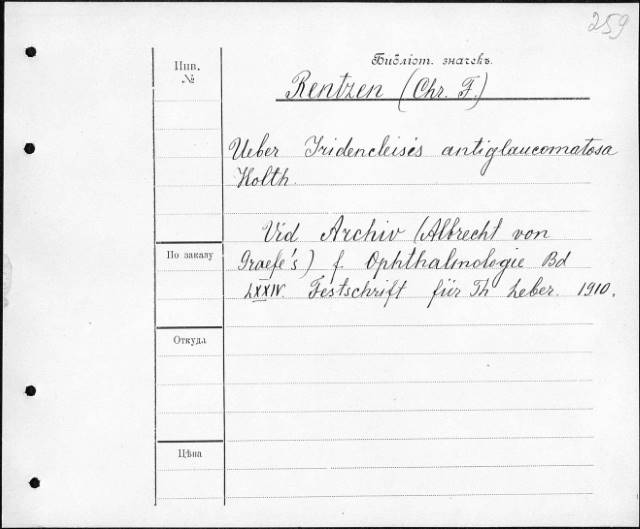 259
Библіот. значекъ.
Инв.
№
Rentzen (Chr. F.)
Ueber Iridencleisis antiglaucomatosa
Holth.
Vid Archiv (Albrecht von
По заказу
Graefe's) f. Ophthalmologie Bd
LXXIV. Festschrift für Th Leber. 1910.
Откуда
Цѣна